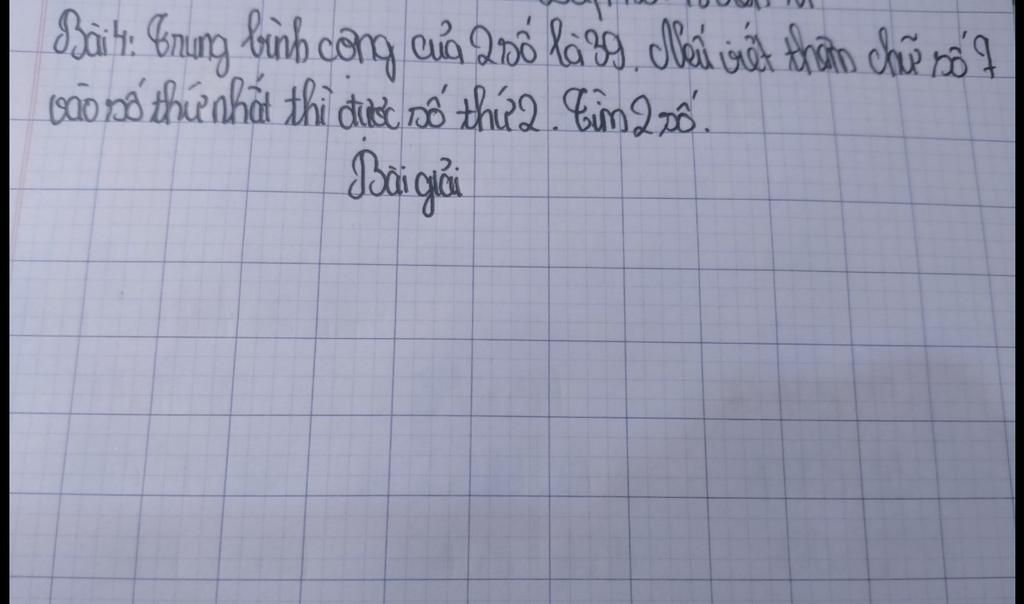 Bài 4: Trung bình cộng của 2 số là 39. Nếu viết thêm chữ số 7
vào số thứ nhất thì được số thứ 2. Tìm 2 số.
Bài giải